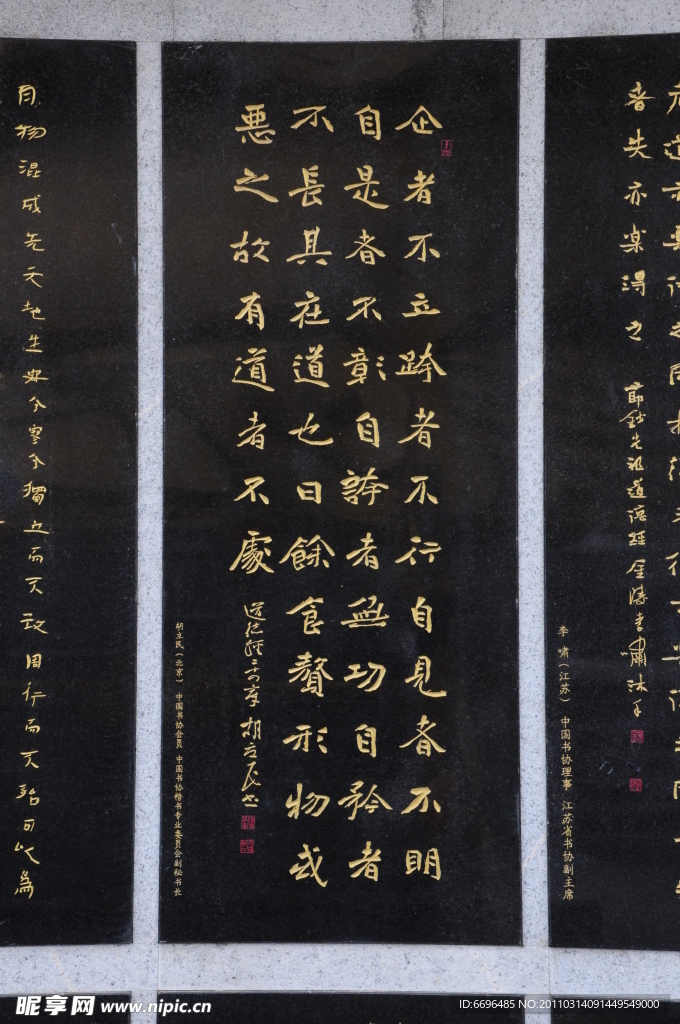 者失亦樂得之
節錄先祖道德經
李啸（江苏） 中国书协理事 江苏省书协副主席
企者不立跨者不行自見者不明
自是者不彰自誇者無功自矜者
不長其在道也曰餘食贅形物或
惡之故有道者不處
道德經二十四章 胡立民书
胡立民（北京） 中国书协会员 中国书协楷书专业委员会副秘书长
有物混成先天地生寂兮寥兮獨立而不改周行而不殆可以為
昵享网 www.nipic.cn
ID:6696485 NO:20110314091449549000